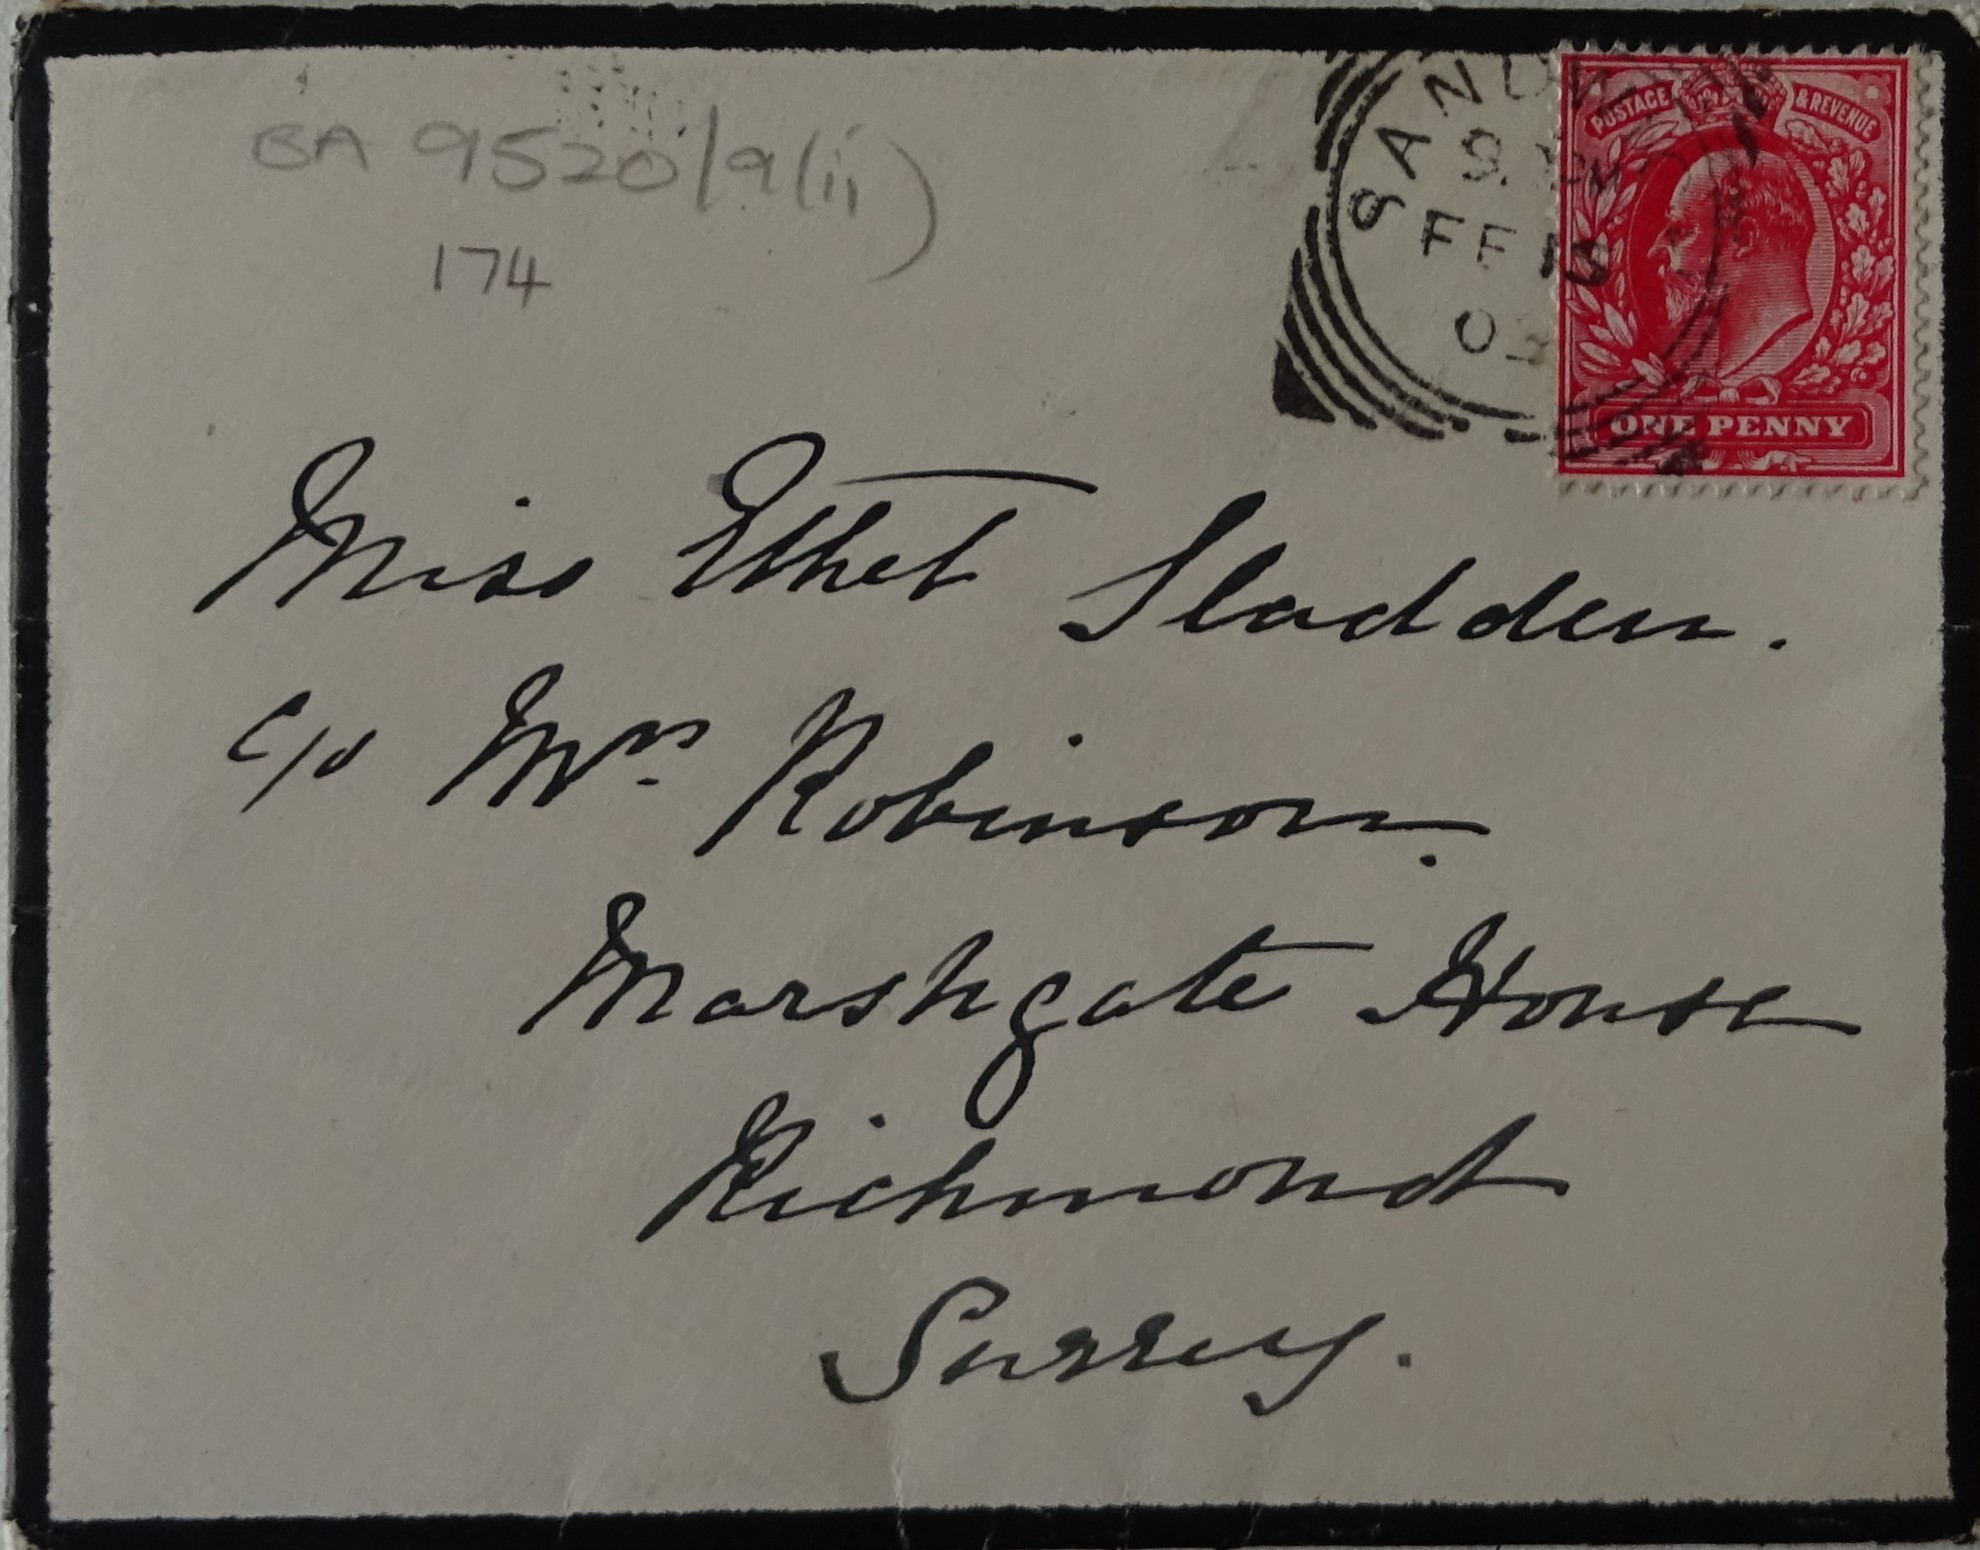 BA 9520/9(ii)
174
POSTAGE & REVENUE
ONE PENNY
FE
03
Miss Ethel Sladden.
c/o Mrs Robinson.
Marshgate House
Richmond
Surrey.